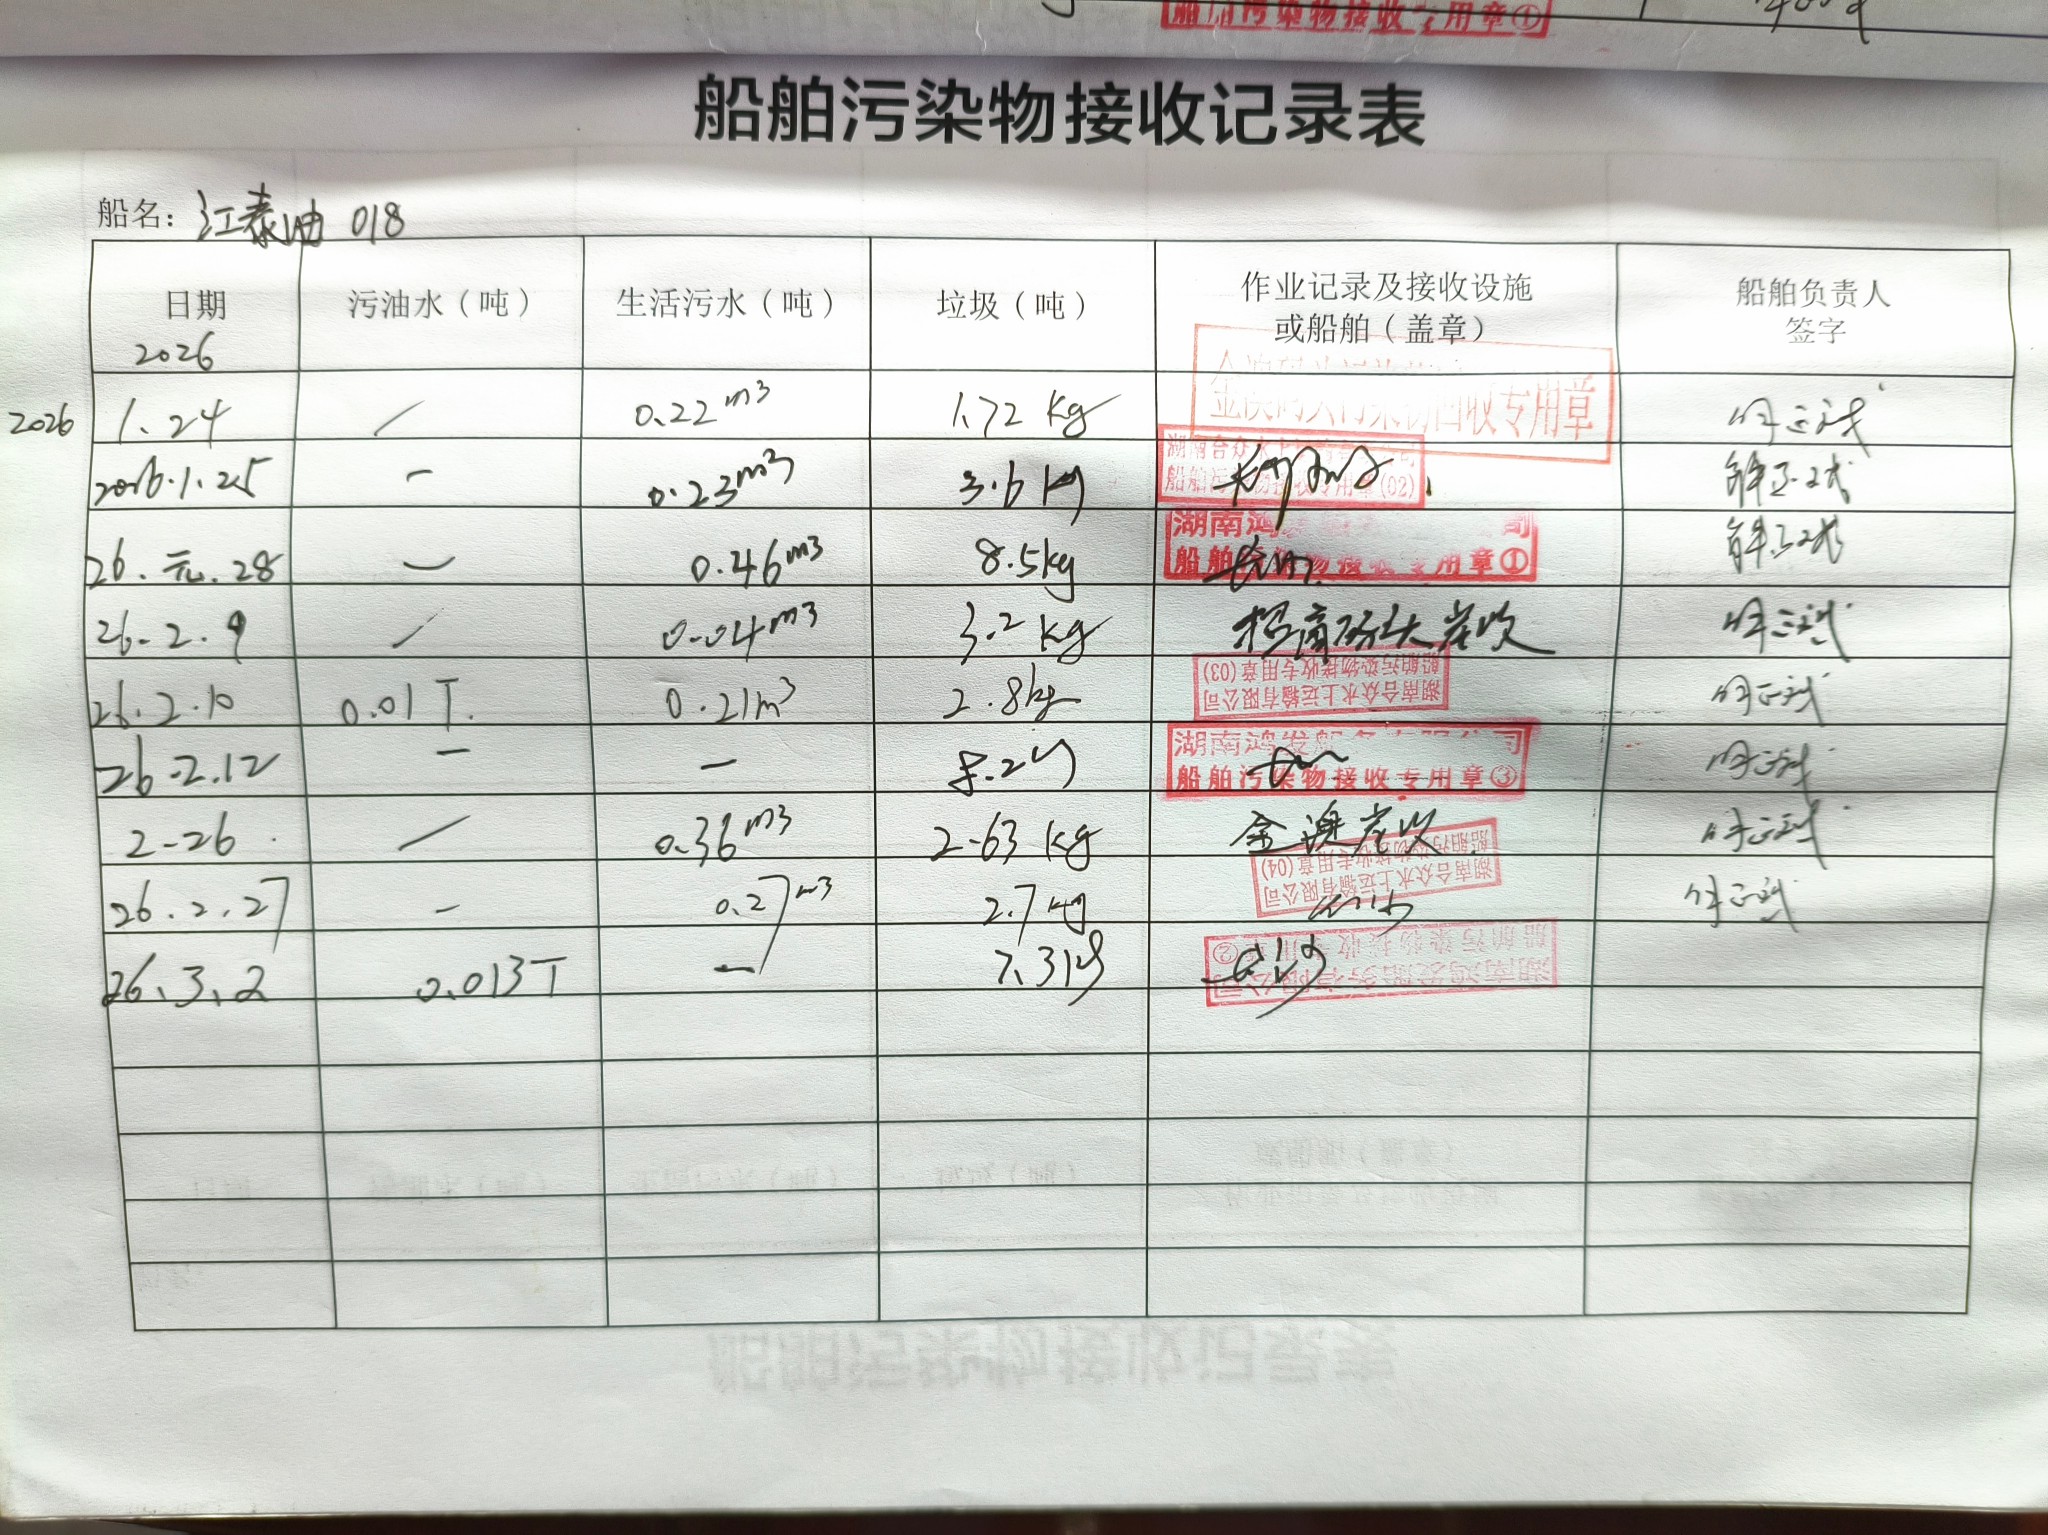 船舶污染物接收专用章①
船舶污染物接收记录表
船名：江泰油 018
日期 2026 污油水（吨） 生活污水（吨） 垃圾（吨） 作业记录及接收设施或船舶（盖章） 船舶负责人签字
2026 1.24 / 0.22m³ 1.72 kg 金澳码头污染物回收专用章
2026.1.25 - 0.23m³ 3.6 kg 湖南合众水上 船舶污染物接收专用章(02)
26.元.28 - 0.46m³ 8.5kg 湖南鸿 司 船舶污染物接收专用章①
26.2.9 / 0.04m³ 3.2 kg 招商码头岸收
26.2.10 0.01T. 0.21m³ 2.8kg 湖南合众水上运输有限公司 船舶污染物接收专用章(03)
26.2.12 - - 湖南鸿发船务有限公司 船舶污染物接收专用章③
2-26. / 0.36m³ 2.63 kg 金澳岸收
26.2.27 - 0.27m³ 2.7kg 湖南合众水上运输有限公司 船舶污染物接收专用章(04)
26.3.2 0.013T - 7.3kg 长沙 湖南鸿发船务有限公司 船舶污染物接收专用章②